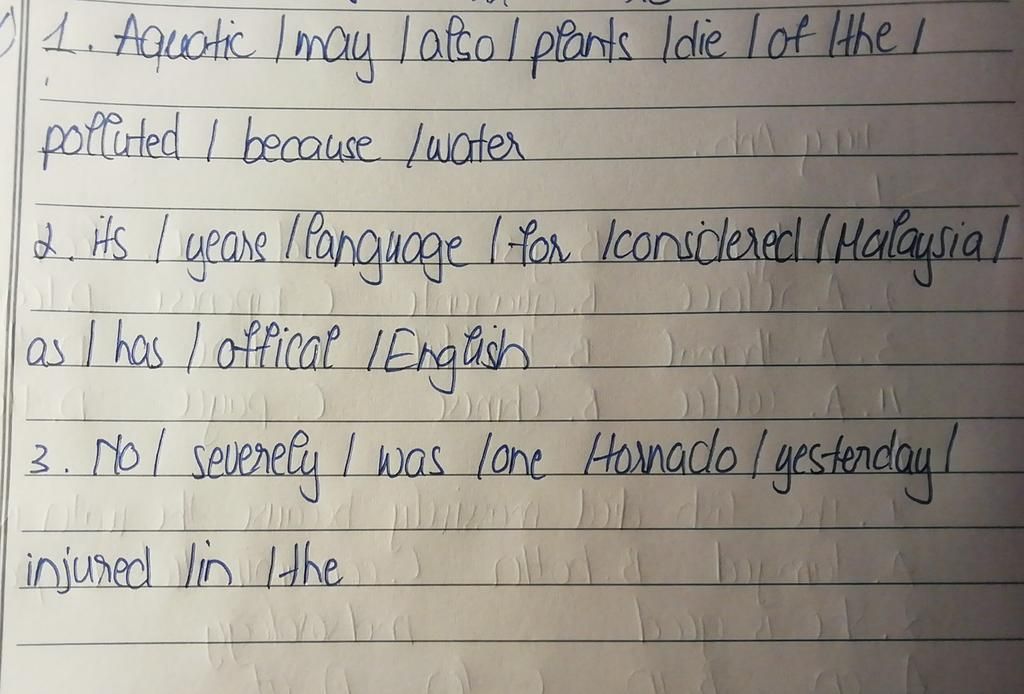 1. Aquatic / may / also / plants / die / of / the /
polluted / because / water
2. its / years / language / for / considered / Malaysia /
as / has / offical / English
3. No / severely / was / one / tornado / yesterday /
injured / in / the